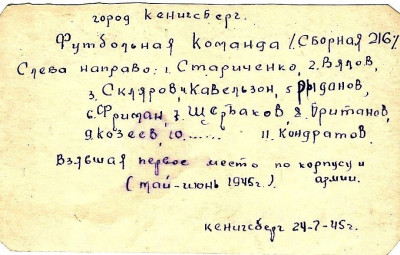 город Кенигсберг.
Футбольная Команда /Сборная 216/
Слева направо: 1. Стариченко, 2. Вялов,
3. Скляров, 4. Кавельзон, 5 Рыданов,
6. Фриман, 7. Щербаков, 8. Британов,
9. Козеев, 10...... 11. Кондратов.
Взявшая первое место по корпусу и
(май-июнь 1945г.) армии.
Кенигсберг 24-7-45г.